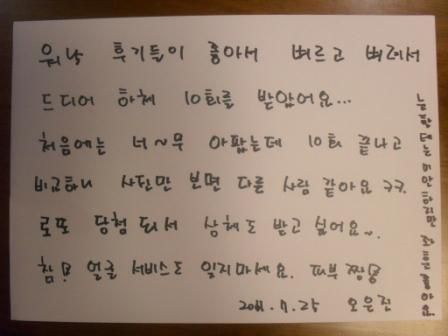 워낙 후기들이 좋아서 벼르고 벼려서
드디어 하체 10회를 받았어요...
처음에는 너~무 아팠는데 10회 끝나고
비교하니 사진만 보면 다른 사람 같아요 ㅋㅋ.
로또 당첨 되서 상체도 받고 싶어요~.
참! 얼굴 서비스도 잊지마세요. 피부 짱!
2011. 7. 25 오은진